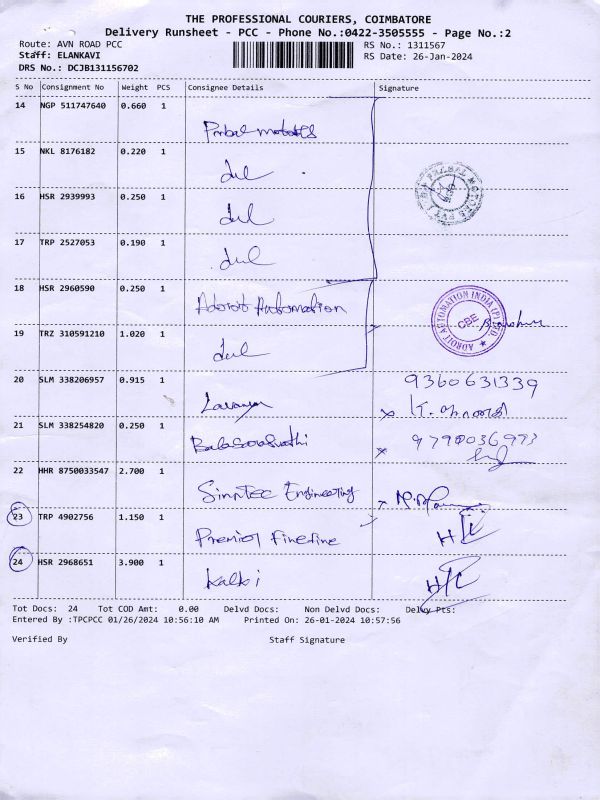 THE PROFESSIONAL COURIERS, COIMBATORE
Delivery Runsheet - PCC - Phone No.:0422-3505555 - Page No.:2
Route: AVN ROAD PCC RS No.: 1311567
Staff: ELANKAVI RS Date: 26-Jan-2024
DRS No.: DCJB131156702
S No Consignment No Weight PCS Consignee Details Signature
14 NGP 511747640 0.660 1
15 NKL 8176182 0.220 1
16 HSR 2939993 0.250 1
17 TRP 2527053 0.190 1
18 HSR 2960590 0.250 1 Adroit Automation
ADROIT AUTOMATION INDIA (P) LTD. CBE
19 TRZ 310591210 1.020 1
20 SLM 338206957 0.915 1 Lavanya 9360631339
21 SLM 338254820 0.250 1
22 HHR 8750033547 2.700 1 Engineering
23 TRP 4902756 1.150 1 Premier
24 HSR 2968651 3.900 1 Kalki
Tot Docs: 24 Tot COD Amt: 0.00 Delvd Docs: Non Delvd Docs: Delvy Pts:
Entered By :TPCPCC 01/26/2024 10:56:10 AM Printed On: 26-01-2024 10:57:56
Verified By Staff Signature